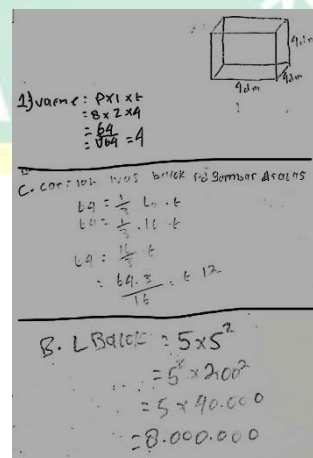 4dm
4dm
4dm
1) vaeme : P x l x t
= 8 x 2 x 4
= 64
= ∛64 = 4
C. luas balok Gambar
64 = 1/3 La . t
64 = 1/3 . 16 . t
64 = 16/3 t
= 64.3/16 = t 12
B. L Balok = 5 x 5²
= 5² x 200²
= 5 x 40.000
= 8.000.000